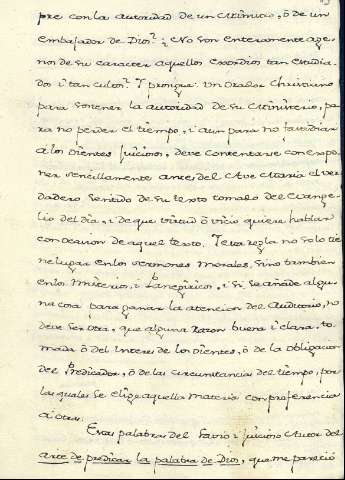 pre con la autoridad de un Ministro, ò de un
embajador de Dios? i No son enteramente age-
nos de su caracter aquellos exordios tan estudia-
dos i tan cultos? Y prosigue: Un Orador Christiano
para sostener la autoridad de su Ministerio, pa-
ra no perder el tiempo, i aun para no fastidiar
à los Oientes juiciosos, deve contentarse con expo-
ner sencillamente antes del Ave Maria el ver-
dadero sentido de su texto tomado del Evange-
lio del dia, i de que virtud ò vicio quiere hablar
con ocasion de aquel texto. Y esta regla no solo tie-
ne lugar en los sermones Morales, sino tambien
en los Misterios, i Panegiricos, i si se añade algu-
na cosa para ganar la atencion del Auditorio, no
deve ser otra, que alguna razon buena i clara, to-
mada ò del interes de los Oientes, ò de la obligacion
del Predicador, ò de las circunstancias del tiempo, por
las quales se elige aquella materia con preferencia
à otra.
Estas palabras del Savio i juicioso Autor del
arte de predicar la palabra de Dios, que me pareciò